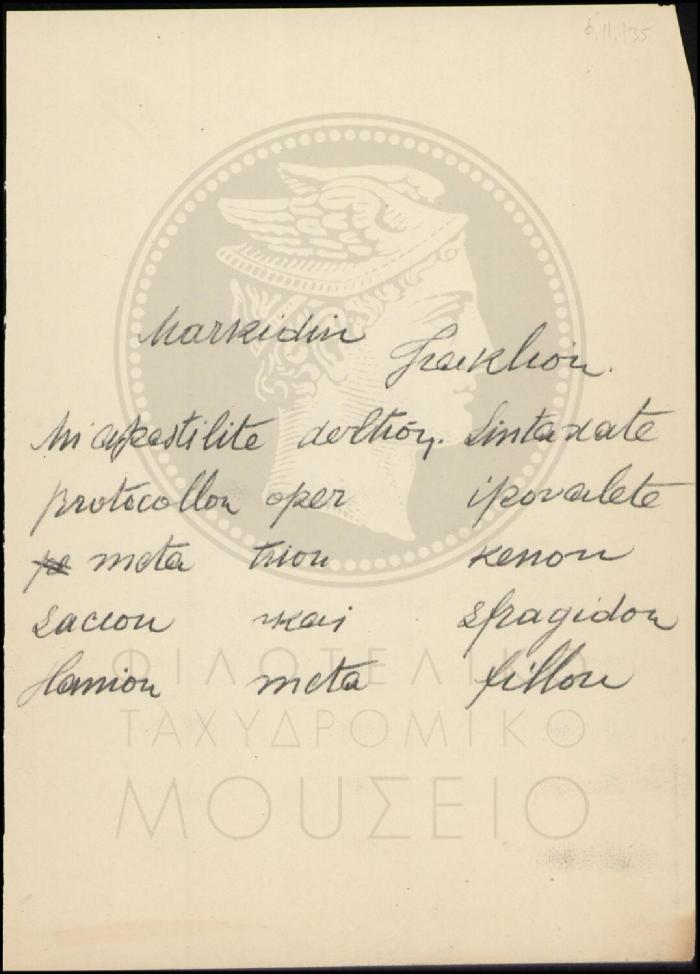 Φ.11.135
Markidin
Iraklion.
Mi apostilite deltion. Sintaxate
protocollon oper ipovalete
meta trion kenon
saccon kai sfragidon
Hanion meta fillou
ΦΙΛΟΤΕΛΙΚΟ
ΤΑΧΥΔΡΟΜΙΚΟ
ΜΟΥΣΕΙΟ